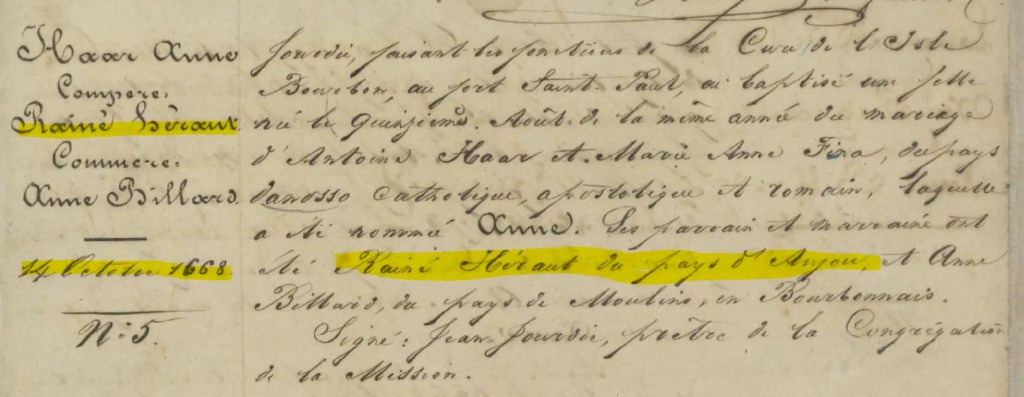 Haar Anne
Compere:
Rainé Héraut.
Commere:
Anne Billard.
14 Octobre 1668.
N:5.
Jourdié, faisant les fonctions de la Cure de l'Isle
Bourbon, au port Saint-Paul, ai baptisé une fille
née le Quinzième. Août de la même année du mariage
d'Antoine Haar et Marie Anne Fina, du pays
danosso Catholique, apostolique et romain, laquelle
a été nommée Anne. Les parrain et marraine ont
été Rainé Héraut du pays d'Anjou, et Anne
Billard, du pays de Moulino, en Bourbonnais.
Signé: Jean Jourdié, prêtre de la Congrégation
de la Mission.